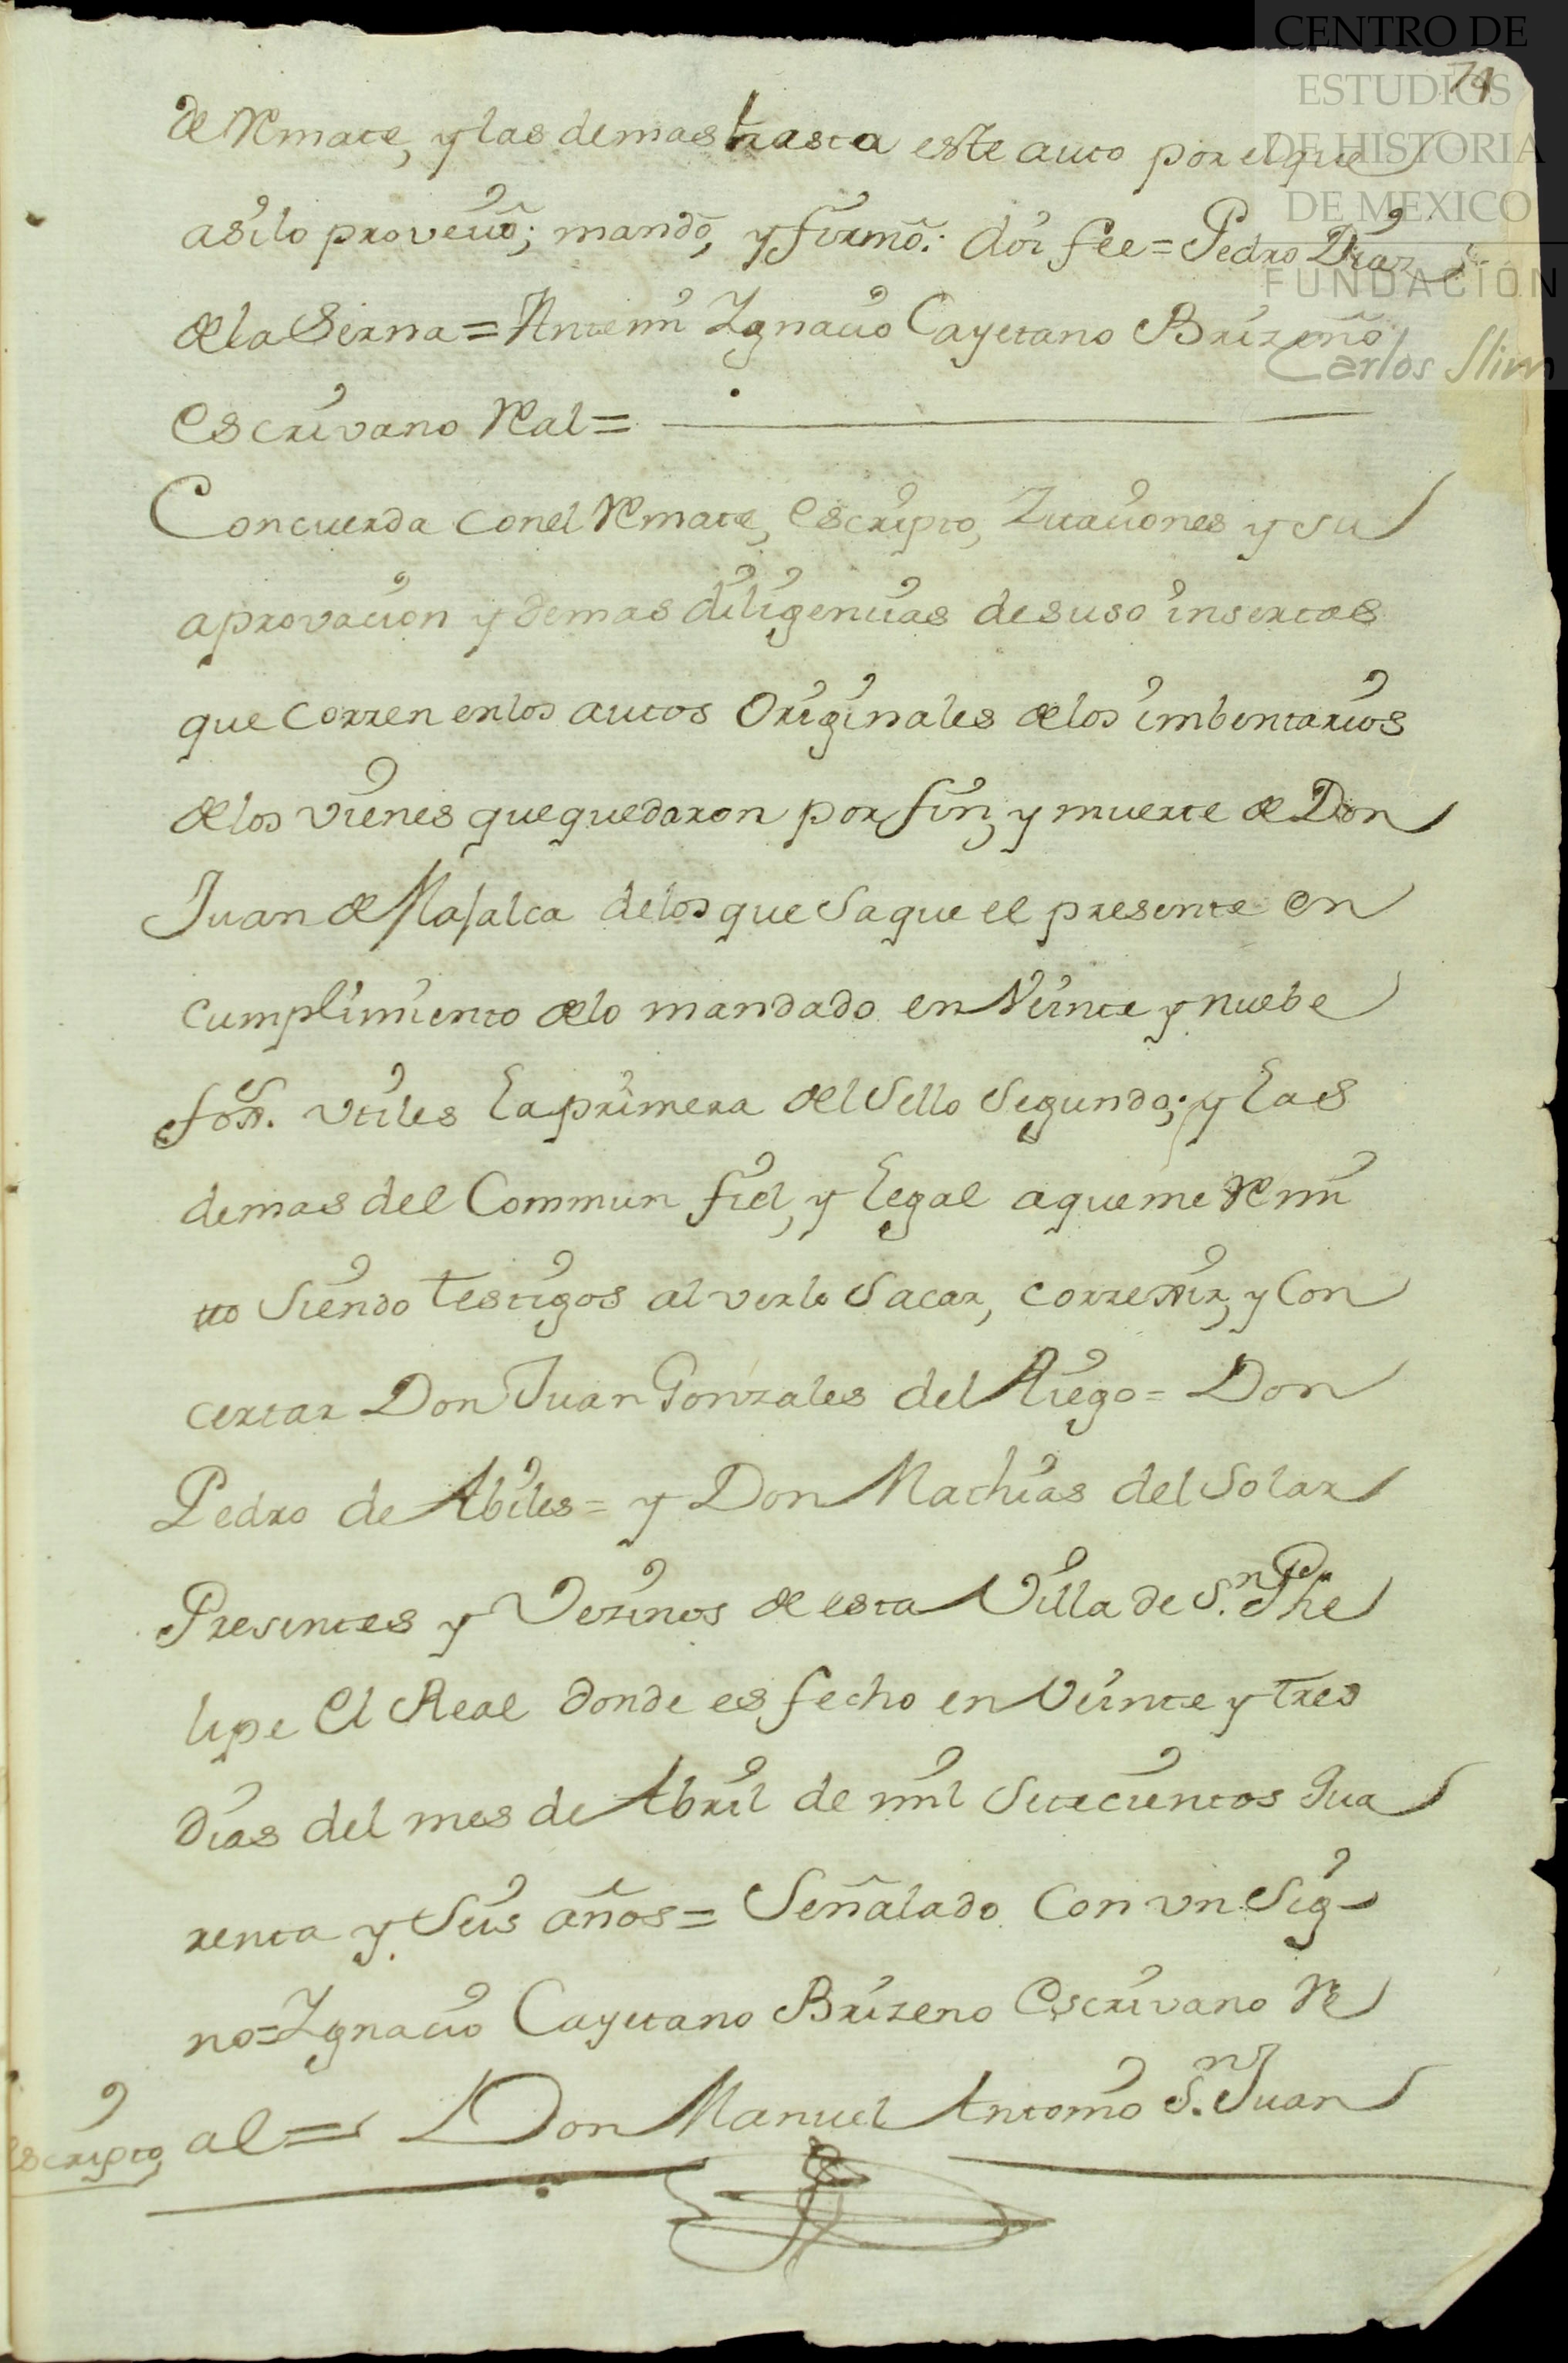 CENTRO DE
ESTUDIOS
DE HISTORIA
DE MEXICO
FUNDACIÓN
Carlos Slim
71
de Remate, y las demas hasta este auto por el que
asilo proveiò; mandò, y firmò: doi fee = Pedro Diaz
de la Serna = Antemi Ygnacio Cayetano Brizeño
Escrivano Real =
Concuerda con el Remate, escripto, Zitaciones y su
aprovacion y demas diligencias desuso insertas
que corren en los autos Originales de los imbentarios
de los vienes que quedaron por fin, y muerte de Don
Juan de Masalca de los que saque el presente en
cumplimiento de lo mandado en Veinte y nuebe
foxs. utiles la primera del Sello Segundo; y las
demas del Commun fiel, y legal aque me Remi
tto siendo testigos al verlo sacar, correxir, y Con
certar Don Juan Gonzales del Riego = Don
Pedro de Abiles = y Don Mathias del Solar
Presentes y Vezinos de esta Villa de Sn. Phe
lipe el Real donde es fecho en veinte y tres
dias del mes de Abril de mil setecientos qua
renta y seis años = Señalado con un Sig-
no = Ygnacio Cayetano Brizeno Escrivano Re
al = Don Manuel Antonio Sn. Juan
escripto